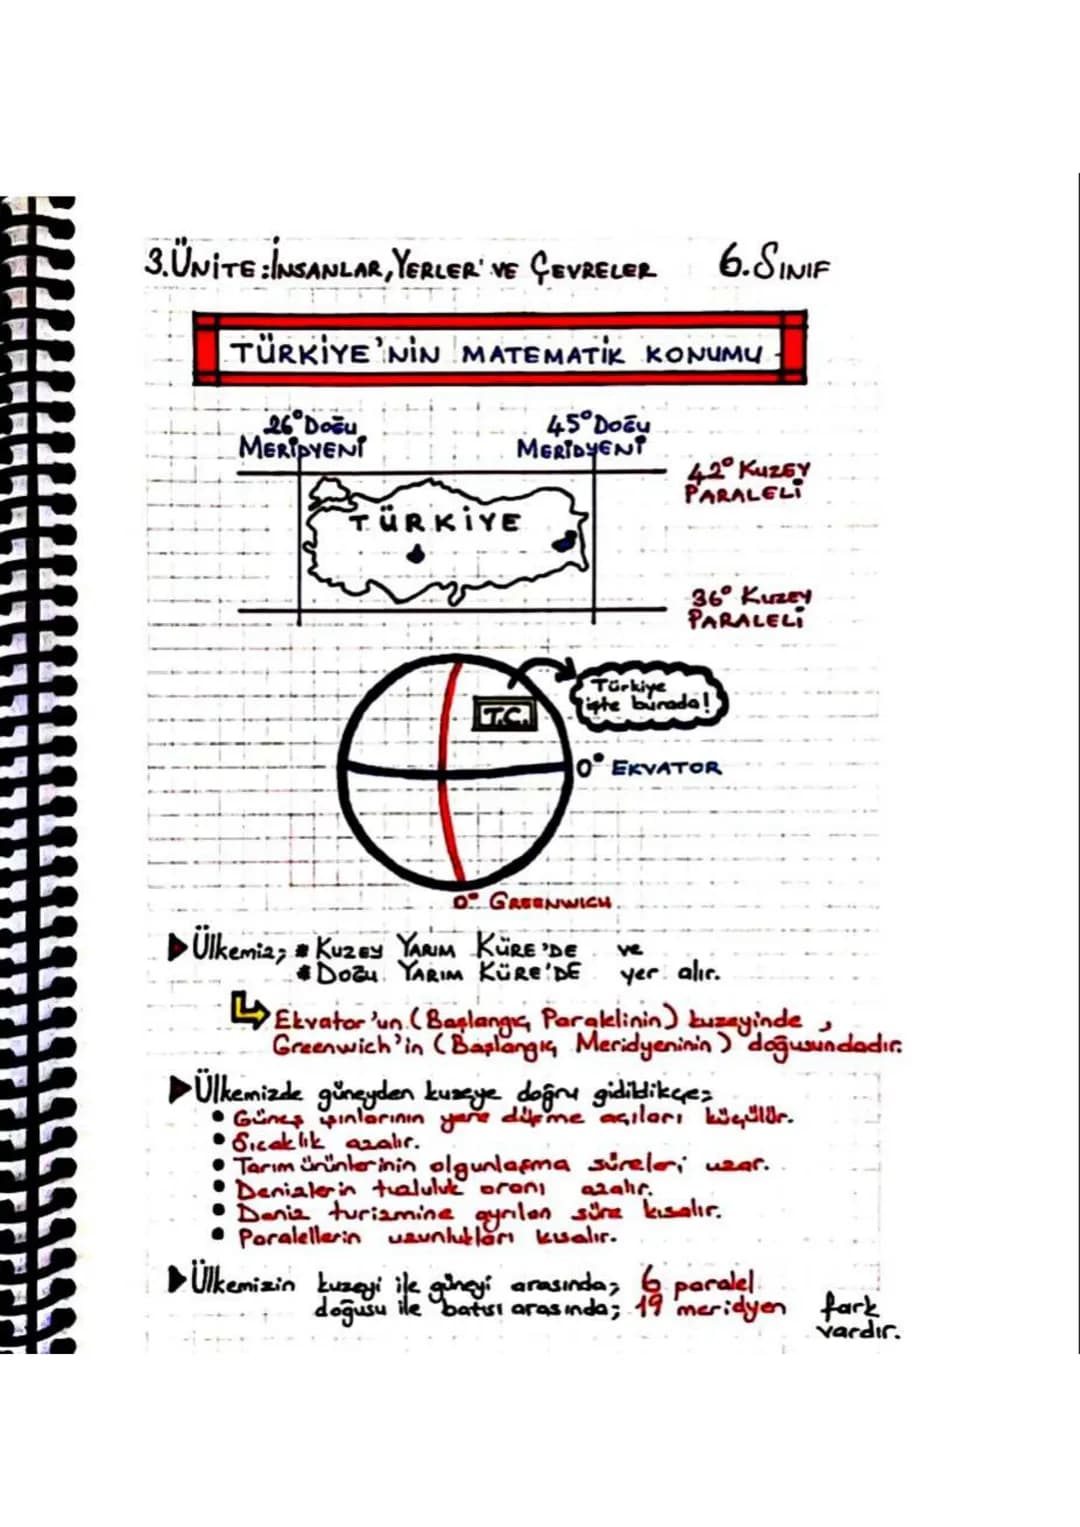 3.ÜNİTE:İNSANLAR, YERLER VE ÇEVRELER 6.SINIF
TÜRKİYE'NİN MATEMATİK KONUMU
26° DOĞU MERİDYENİ
45° DOĞU MERİDYENİ
42° KUZEY PARALELİ
TÜRKİYE
36° KUZEY PARALELİ
Türkiye
işte burada!
T.C.
0° EKVATOR
0° GREENWICH
Ülkemiz; * KUZEY YARIM KÜRE'DE ve
* DOĞU YARIM KÜRE'DE yer alır.
Ekvator'un (Başlangıç Paralelinin) kuzeyinde,
Greenwich'in (Başlangıç Meridyeninin) doğusundadır.
Ülkemizde güneyden kuzeye doğru gidildikçe;
• Güneş ışınlarının yere düşme açıları küçülür.
• Sıcaklık azalır.
• Tarım ürünlerinin olgunlaşma süreleri uzar.
• Denizlerin tuzluluk oranı azalır.
• Deniz turizmine ayrılan süre kısalır.
• Paralellerin uzunlukları kısalır.
Ülkemizin kuzeyi ile güneyi arasında; 6 paralel
doğusu ile batısı arasında; 19 meridyen fark vardır.